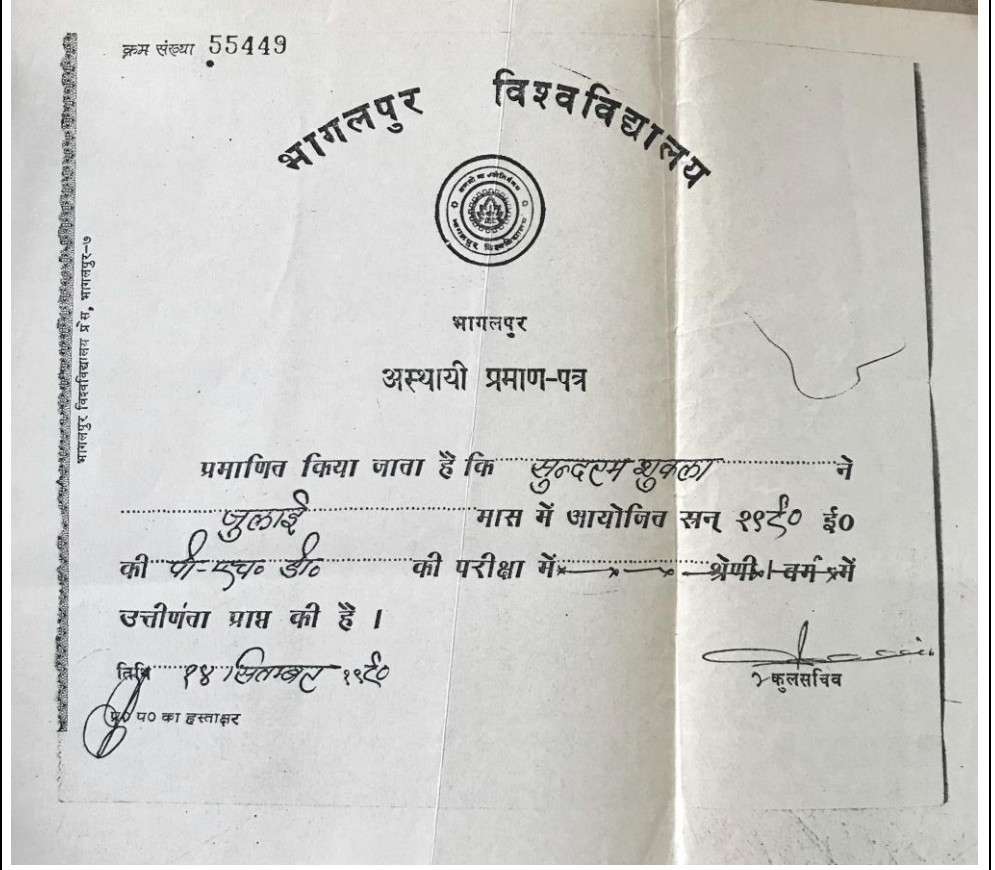 क्रम संख्या 55449
भागलपुर विश्वविद्यालय
भागलपुर विश्वविद्यालय
भागलपुर
अस्थायी प्रमाण-पत्र
प्रमाणित किया जाता है कि सुन्दरम शुक्ला ने
जुलाई मास में आयोजित सन् १९९० ई०
की पी-एच० डी० की परीक्षा में श्रेणी। वर्ग में
उत्तीर्णता प्राप्त की है ।
तिथि १४ सितम्बर १९९०
कुलसचिव
प्र० प० का हस्ताक्षर
भागलपुर विश्वविद्यालय प्रेस, भागलपुर-७